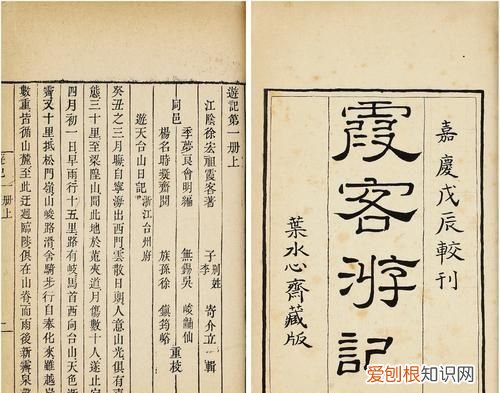 嘉慶戊辰較刊
霞客游記
葉水心齋藏版
遊記第一册上
江陰徐宏祖霞客著 子李寄介立輯
別姓
同邑
季夢良會明編 無錫吳峻
楊名時凝齋閱 族孫徐鎮筠峪
重校
遊天台山日記 浙江台州府
癸丑之三月晦自寧海出西門雲散日朗人意山光俱有
態三十里至梁隍山聞此地於菟夾道月傷數十人遂止
四月初一日早雨行十五里路有岐馬首西向台山天色
霽又十里抵松門嶺山峻路滑舍騎步行自奉化來雖越
數重皆循山麓至此迂迴臨陟俱在山脊而雨後新霽泉
册上
爱刨根知识网
www.baogenzhishi.com